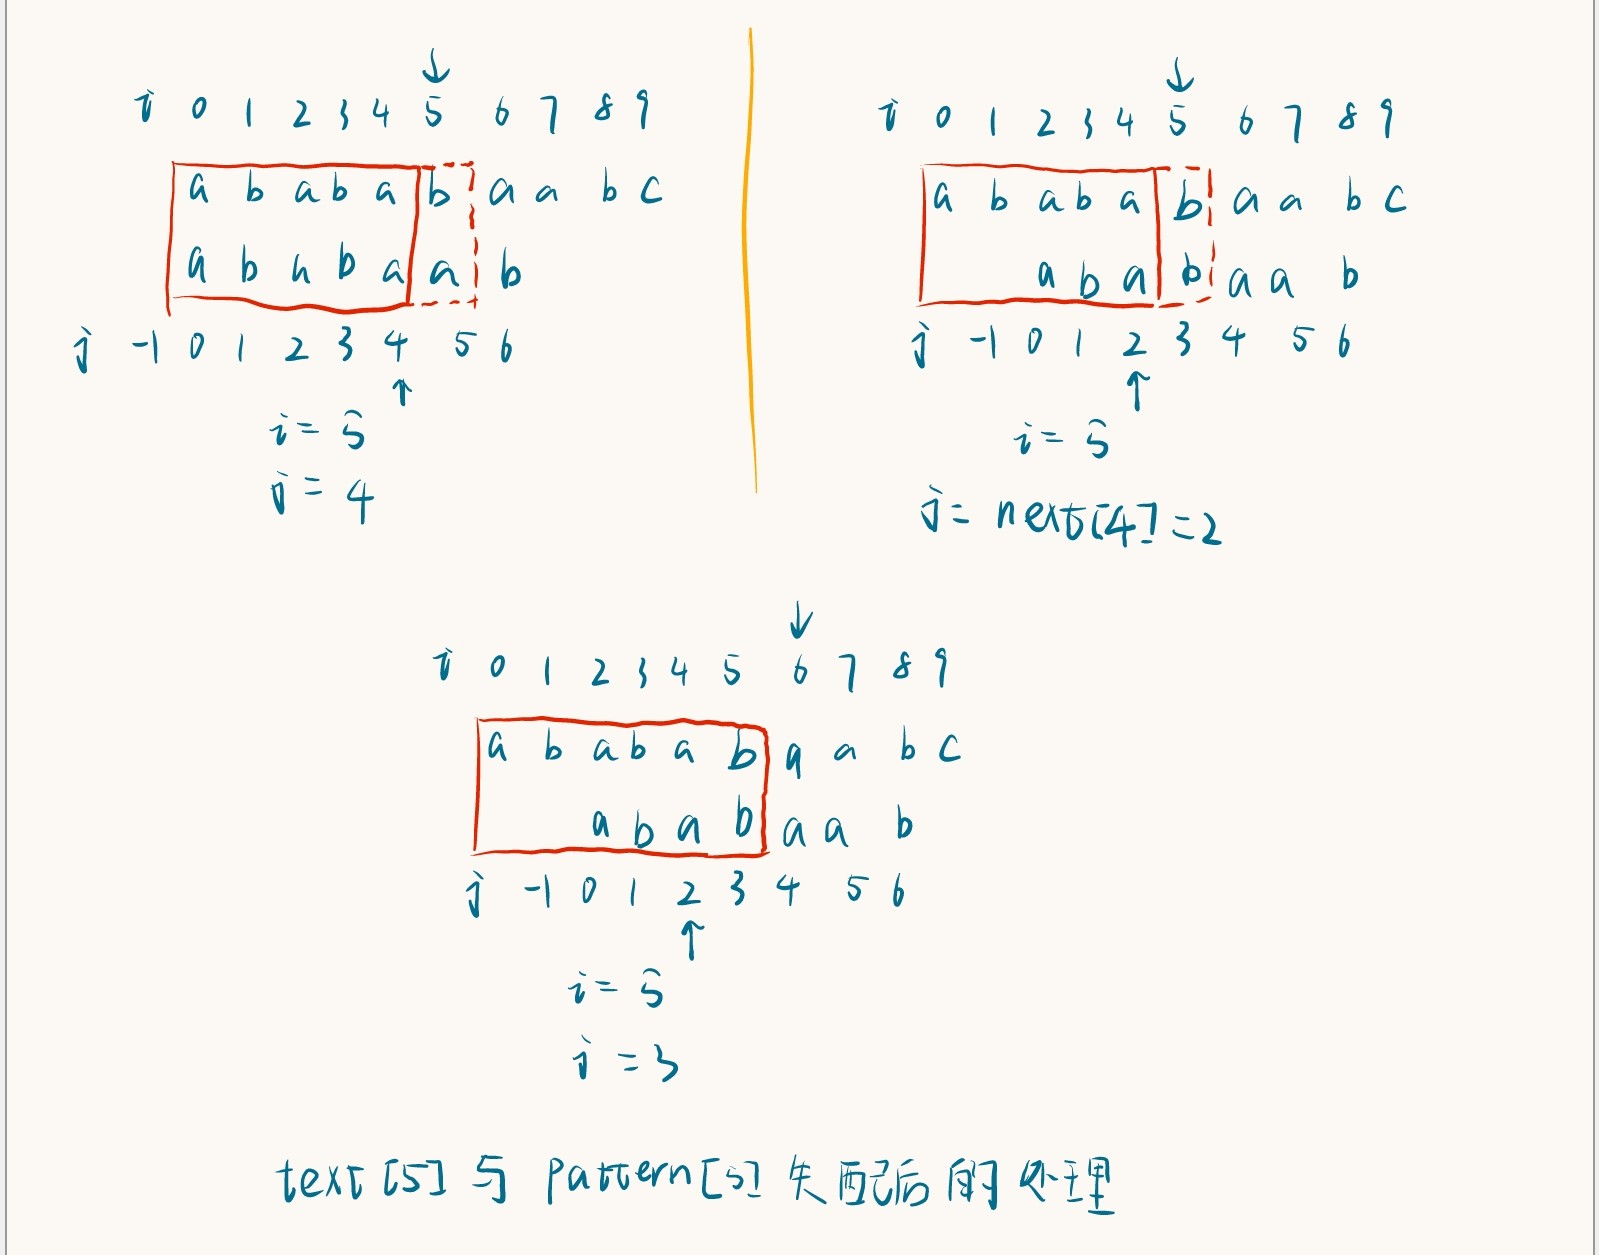 ↓
i 0 1 2 3 4 5 6 7 8 9
a b a b a b a a b c
a b a b a a b
j -1 0 1 2 3 4 5 6
↑
i = 5
j = 4
↓
i 0 1 2 3 4 5 6 7 8 9
a b a b a b a a b c
a b a b a a b
j -1 0 1 2 3 4 5 6
↑
i = 5
j = next[4] = 2
↓
i 0 1 2 3 4 5 6 7 8 9
a b a b a b a a b c
a b a b a a b
j -1 0 1 2 3 4 5 6
↑
i = 5
j = 3
text[5] 与 pattern[5] 失配后的处理